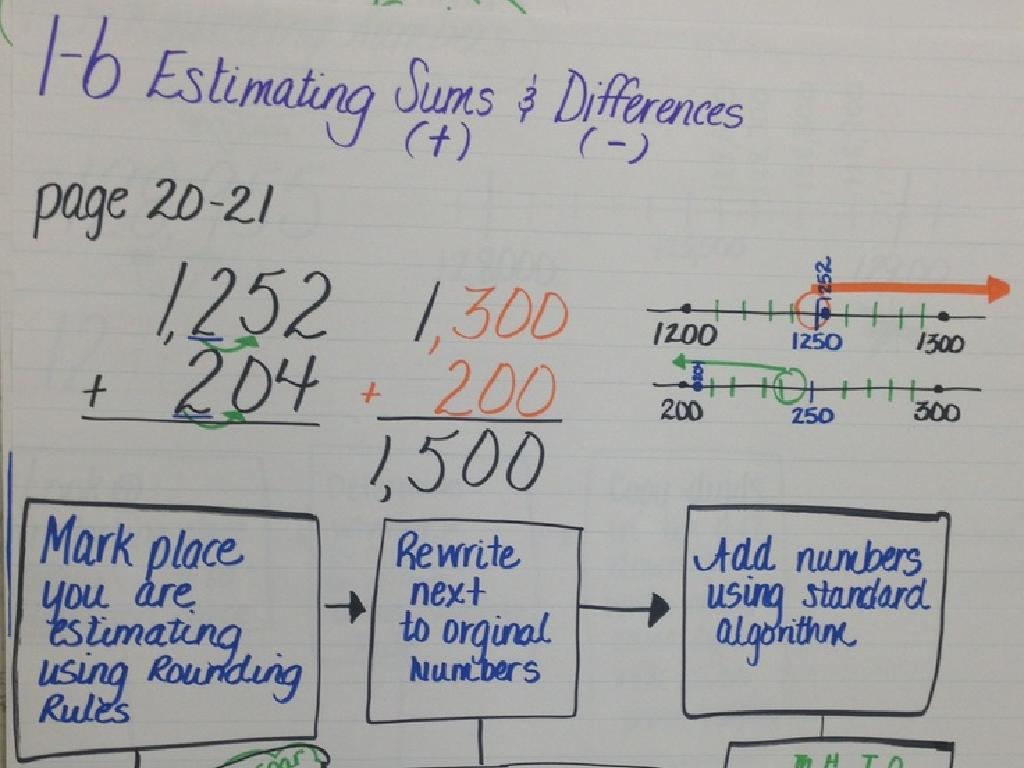 1-6 Estimating Sums & Differences
(+) (-)
page 20-21
1,252
+ 204
1,300
+ 200
1,500
1252
1200 1250 1300
200 250 300
Mark place
you are
estimating
using Rounding
Rules
Rewrite
next
to orginal
Numbers
Add numbers
using standard
algorithm
H T O